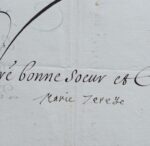 bonne Soeur et
Marie Terese